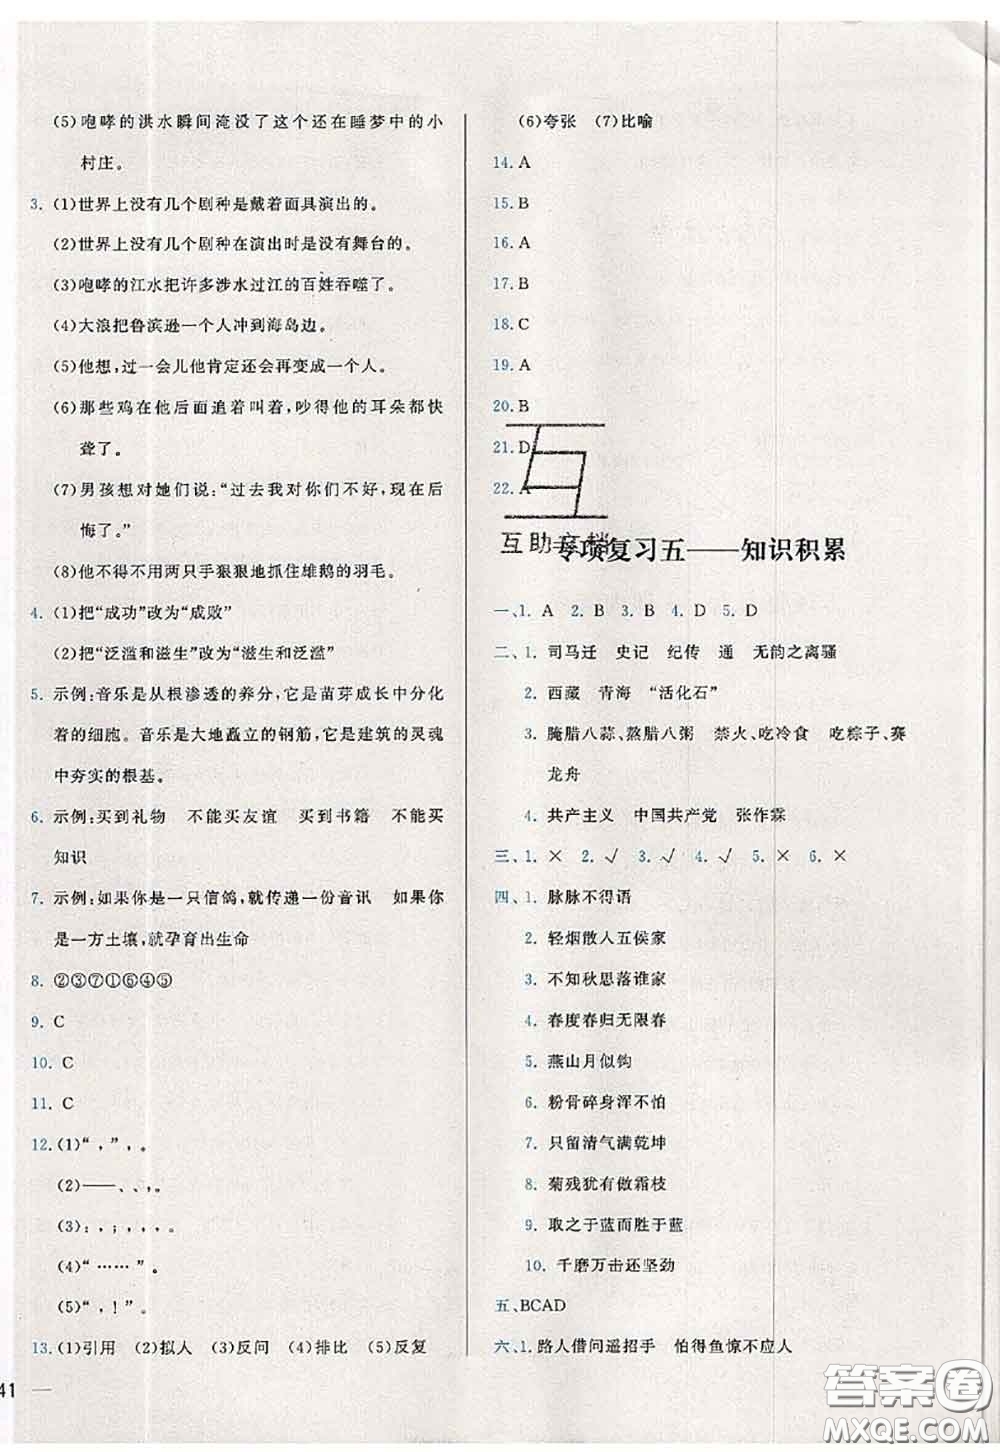 (5)咆哮的洪水瞬间淹没了这个还在睡梦中的小
村庄。
3. (1)世界上没有几个剧种是戴着面具演出的。
(2)世界上没有几个剧种在演出时是没有舞台的。
(3)咆哮的江水把许多涉水过江的百姓吞噬了。
(4)大浪把鲁滨逊一个人冲到海岛边。
(5)他想,过一会儿他肯定还会再变成一个人。
(6)那些鸡在他后面追着叫着,吵得他的耳朵都快
聋了。
(7)男孩想对她们说:“过去我对你们不好,现在后
悔了。”
(8)他不得不用两只手狠狠地抓住雄鹅的羽毛。
4. (1)把“成功”改为“成败”
(2)把“泛滥和滋生”改为“滋生和泛滥”
5. 示例:音乐是从根渗透的养分,它是苗芽成长中分化
着的细胞。音乐是大地矗立的钢筋,它是建筑的灵魂
中夯实的根基。
6. 示例:买到礼物 不能买友谊 买到书籍 不能买
知识
7. 示例:如果你是一只信鸽,就传递一份音讯 如果你
是一方土壤,就孕育出生命
8. ②③⑦①⑥④⑤
9. C
10. C
11. C
12. (1)“,”,。
(2)——、、,。
(3):,;,,,。
(4)“……”。
(5)“,!”。
13. (1)引用 (2)拟人 (3)反问 (4)排比 (5)反复
41
(6)夸张 (7)比喻
14. A
15. B
16. A
17. B
18. C
19. A
20. B
21. D
22. A
互助文档
专项复习五——知识积累
一、1. A 2. B 3. B 4. D 5. D
二、1. 司马迁 史记 纪传 通 无韵之离骚
2. 西藏 青海 “活化石”
3. 腌腊八蒜、熬腊八粥 禁火、吃冷食 吃粽子、赛
龙舟
4. 共产主义 中国共产党 张作霖
三、1. × 2. √ 3. √ 4. √ 5. × 6. ×
四、1. 脉脉不得语
2. 轻烟散入五侯家
3. 不知秋思落谁家
4. 春度春归无限春
5. 燕山月似钩
6. 粉骨碎身浑不怕
7. 只留清气满乾坤
8. 菊残犹有傲霜枝
9. 取之于蓝而胜于蓝
10. 千磨万击还坚劲
五、BCAD
六、1. 路人借问遥招手 怕得鱼惊不应人
答案圈
MXQE.COM